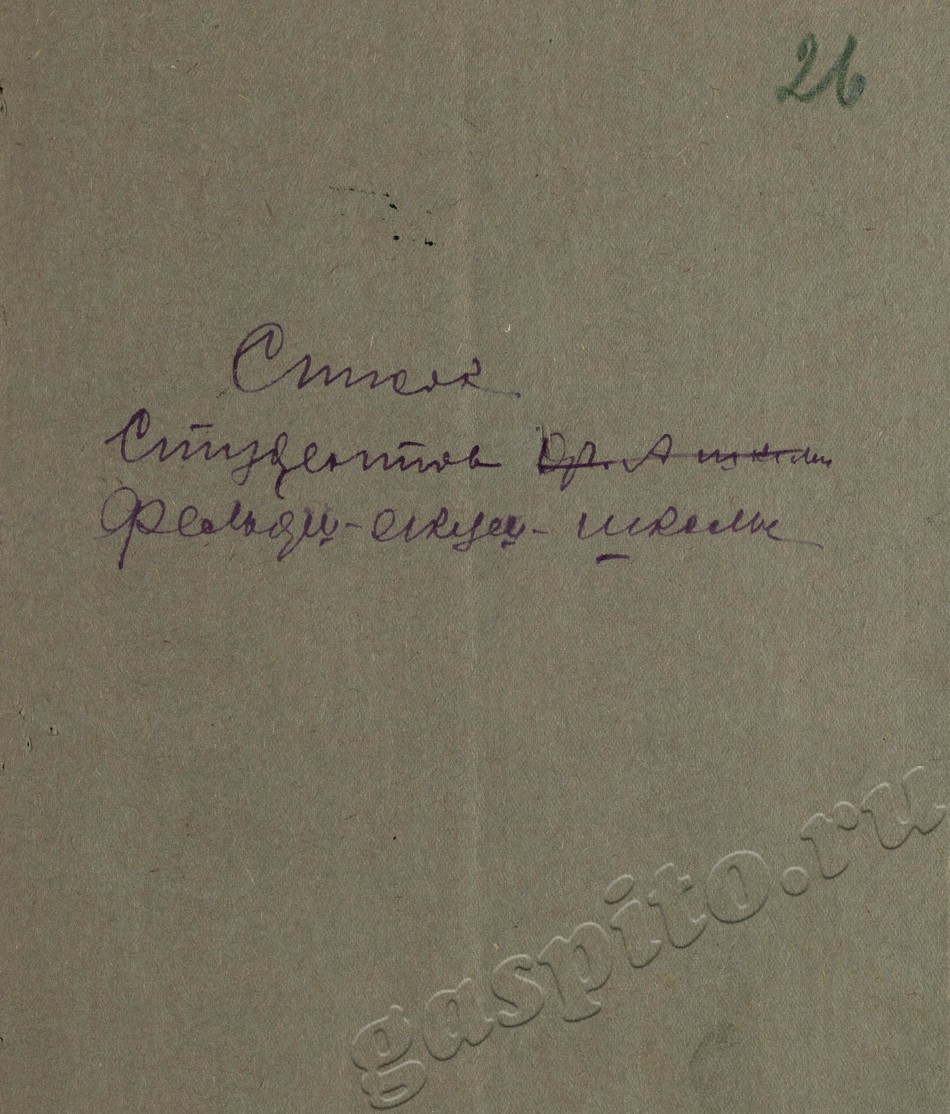 26
Список
Студентов
Фельдш-акуш- школы
gaspito.ru